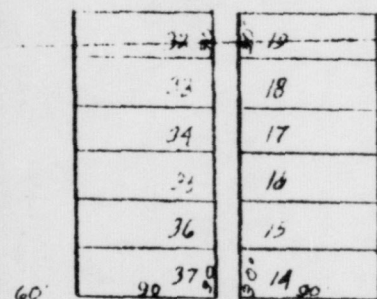 32 19
33 18
34 17
35 16
36 15
37 14
60' 90 30' 90